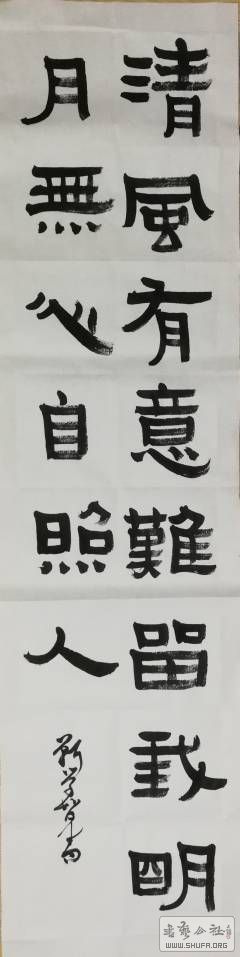 清風有意難留我明
月無心自照人
书艺公社
WWW.SHUFA.ORG